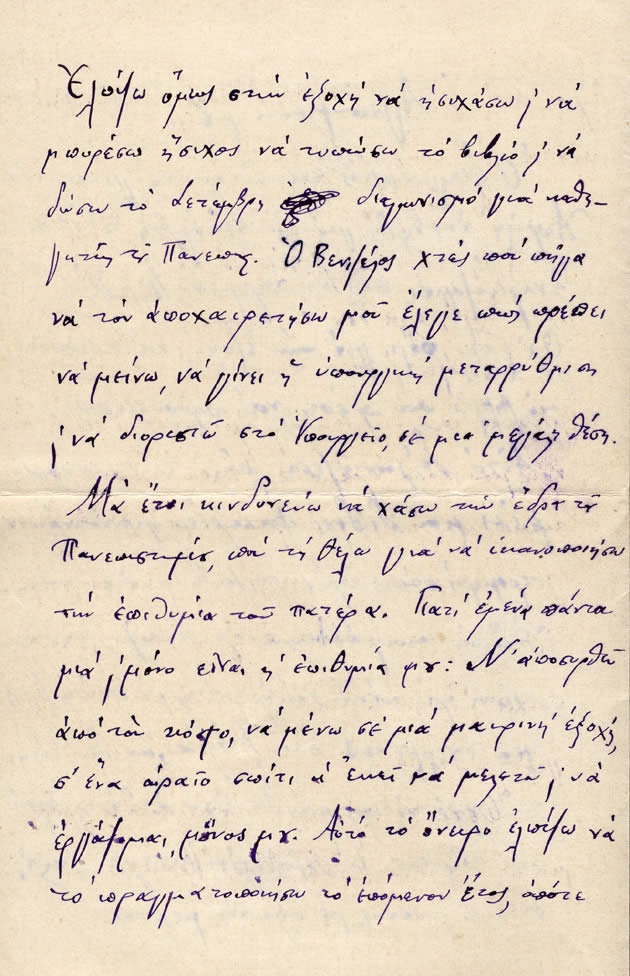 Ἐλπίζω ὅμως στὴν ἐξοχὴ νὰ ἡσυχάσω ϗ νὰ
μπορέσω ἥσυχος νὰ τυπώσω τὸ βιβλίο ϗ νὰ
δώσω τὸ Σετέμβρη διαγωνισμὸ γιὰ καθη-
γητὴς τοῦ Πανεπις. Ὁ Βενιζέλος χτὲς ποὺ πῆγα
νὰ τὸν ἀποχαιρετήσω μοῦ ἔλεγε πὼς πρέπει
νὰ μείνω, νὰ γίνει ἡ ὑπουργικὴ μεταρρύθμιση
ϗ νὰ διοριστῶ στὸ Ὑπουργεῖο, σὲ μιὰ μεγάλη θέση.
Μὰ ἔτσι κινδυνεύω νὰ χάσω τὴν ἕδρα τοῦ
Πανεπιστημίου, ποὺ τὴ θέλω γιὰ νὰ ἱκανοποιήσω
τὴν ἐπιθυμία τοῦ πατέρα. Γιατὶ ἐμένα πάντα
μιὰ ϗ μόνο εἶναι ἡ ἐπιθυμία μου: Ν' ἀποσυρθῶ
ἀπὸ τὸν κόσμο, νὰ μένω σὲ μιὰ μακρινὴ ἐξοχή,
σ' ἕνα ὡραῖο σπίτι ϗ ἐκεῖ νὰ μελετῶ ϗ νὰ
ἐργάζομαι, μόνος μου. Αὐτὸ τὸ ὄνειρο ἐλπίζω νὰ
τὸ πραγματοποιήσω τὸ ἑπόμενον ἔτος, ὁπότε